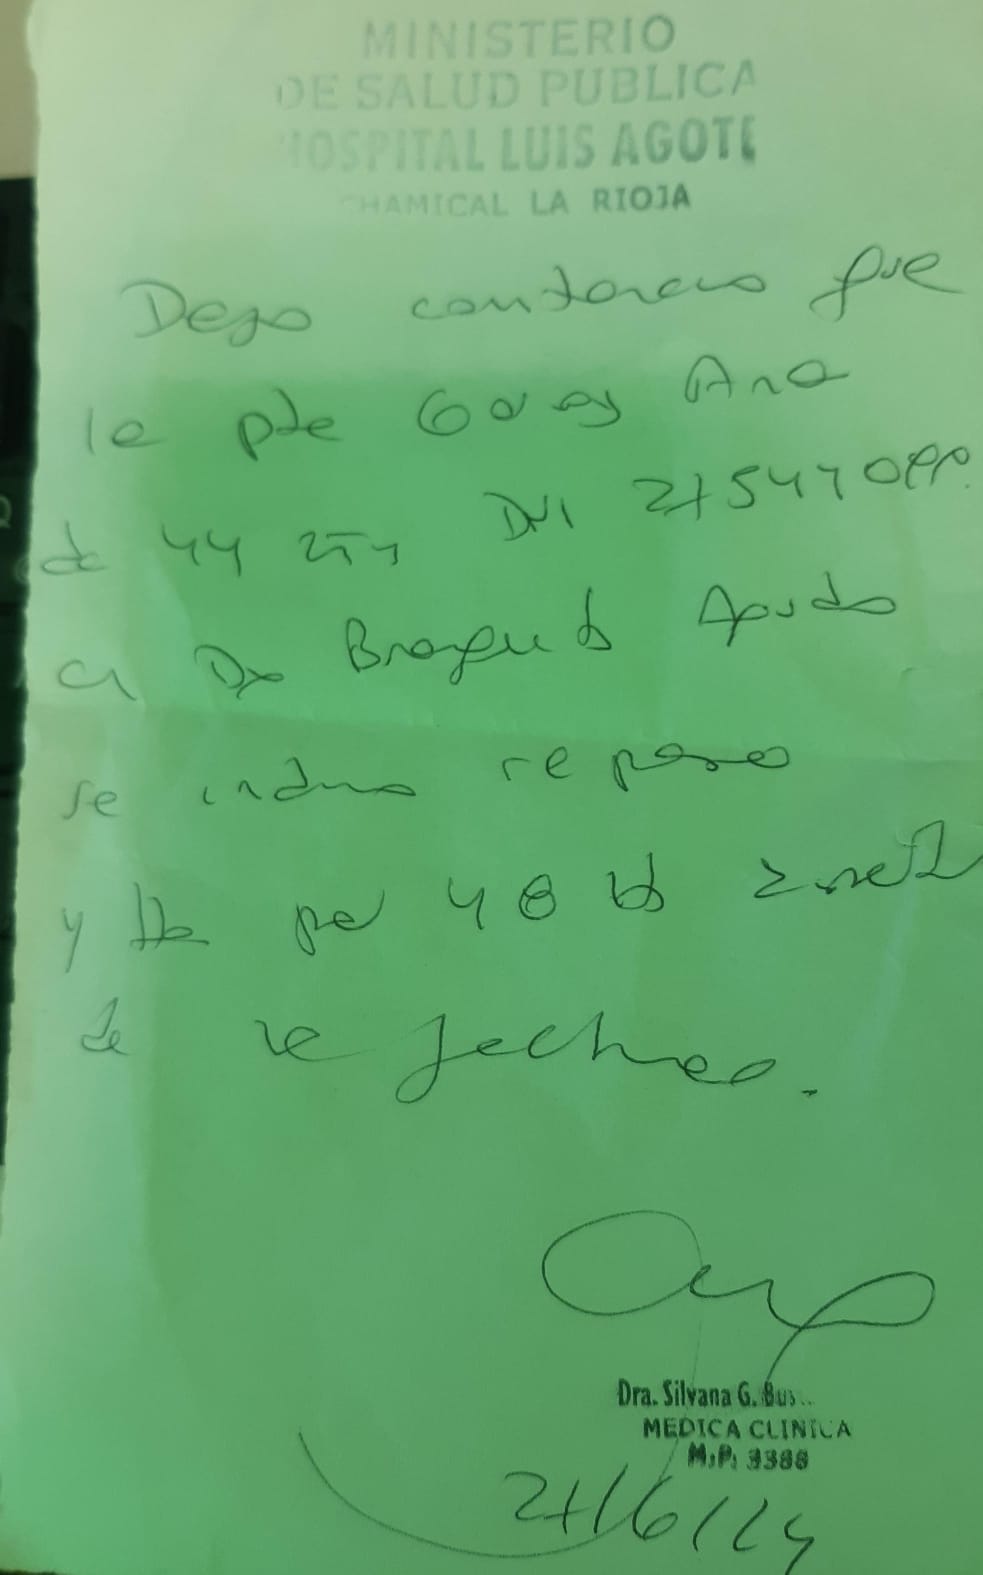 MINISTERIO
DE SALUD PUBLICA
HOSPITAL LUIS AGOTE
CHAMICAL LA RIOJA
Dejo constancia que
la pte Ana
de 44 DNI
cn Dx Agudo
se indica reposo
y tto por 48 hs
de la fecha.
Dra. Silvana G.
MEDICA CLINICA
M.P. 3388
27/6/24